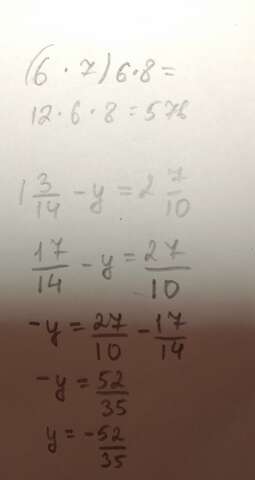 (6 · 7) 6 · 8 =
12 · 6 · 8 = 576
1 3/14 - y = 2 7/10
17/14 - y = 27/10
-y = 27/10 - 17/14
-y = 52/35
y = -52/35